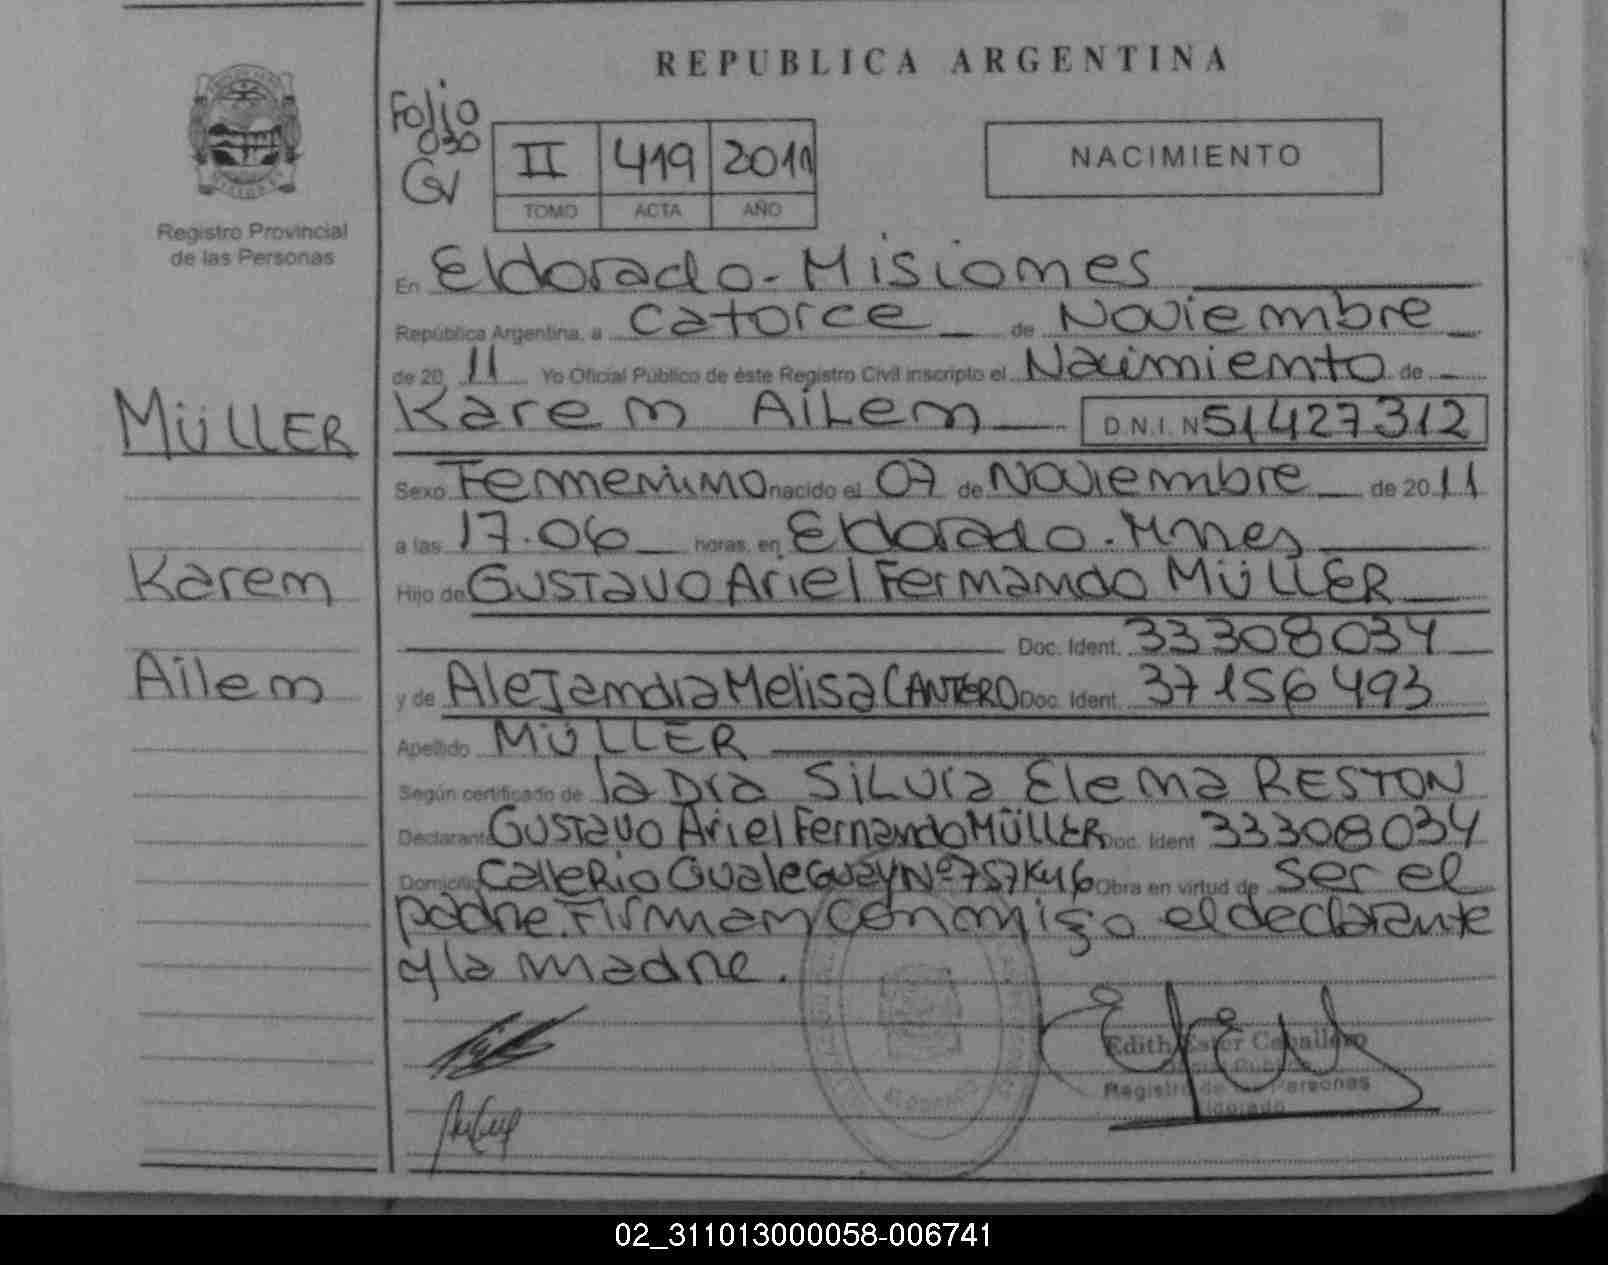 REPUBLICA ARGENTINA
Folio
030
II 419 2011
TOMO ACTA AÑO
NACIMIENTO
Registro Provincial
de las Personas
En Eldorado - Misiones
República Argentina, a catorce de Noviembre
de 20 11 Yo Oficial Público de éste Registro Civil inscripto el Nacimiento de
MÜLLER
Karen Ailen D.N.I. N 51427312
Sexo Femenino nacido el 07 de Noviembre de 20 11
a las 17.06 horas, en Eldorado - Mnes
Karen
Hijo de Gustavo Ariel Fernando MÜLLER
Doc. Ident. 33308034
Ailen
y de Alejandra Melisa CANTERO Doc. Ident. 37156493
Apellido MÜLLER
Según certificado de la Dra Silvia Elena RESTON
Declarante Gustavo Ariel Fernando MÜLLER Doc. Ident 33308034
Domicilio Calle Rio Gualeguay Nº 757 Km 6 Obra en virtud de ser el
padre. Firman conmigo el declarante
y la madre.
Edith Ester Caballero
Registro de las Personas
Eldorado
02_311013000058-006741